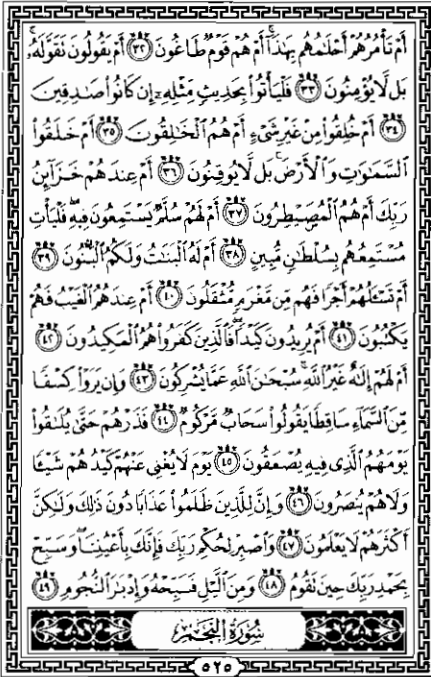 أَمْ تَأْمُرُهُمْ أَحْلَٰمُهُم بِهَٰذَآ ۚ أَمْ هُمْ قَوْمٌ طَاغُونَ ٣٢ أَمْ يَقُولُونَ تَقَوَّلَهُۥ ۚ
بَل لَّا يُؤْمِنُونَ ٣٣ فَلْيَأْتُوا۟ بِحَدِيثٍ مِّثْلِهِۦٓ إِن كَانُوا۟ صَٰدِقِينَ
٣٤ أَمْ خُلِقُوا۟ مِنْ غَيْرِ شَىْءٍ أَمْ هُمُ ٱلْخَٰلِقُونَ ٣٥ أَمْ خَلَقُوا۟
ٱلسَّمَٰوَٰتِ وَٱلْأَرْضَ ۚ بَل لَّا يُوقِنُونَ ٣٦ أَمْ عِندَهُمْ خَزَآئِنُ
رَبِّكَ أَمْ هُمُ ٱلْمُصَۣيْطِرُونَ ٣٧ أَمْ لَهُمْ سُلَّمٌ يَسْتَمِعُونَ فِيهِ ۖ فَلْيَأْتِ
مُسْتَمِعُهُم بِسُلْطَٰنٍ مُّبِينٍ ٣٨ أَمْ لَهُ ٱلْبَنَٰتُ وَلَكُمُ ٱلْبَنُونَ ٣٩
أَمْ تَسْـَٔلُهُمْ أَجْرًا فَهُم مِّن مَّغْرَمٍ مُّثْقَلُونَ ٤٠ أَمْ عِندَهُمُ ٱلْغَيْبُ فَهُمْ
يَكْتُبُونَ ٤١ أَمْ يُرِيدُونَ كَيْدًا ۖ فَٱلَّذِينَ كَفَرُوا۟ هُمُ ٱلْمَكِيدُونَ ٤٢
أَمْ لَهُمْ إِلَٰهٌ غَيْرُ ٱللَّهِ ۚ سُبْحَٰنَ ٱللَّهِ عَمَّا يُشْرِكُونَ ٤٣ وَإِن يَرَوْا۟ كِسْفًا
مِّنَ ٱلسَّمَآءِ سَاقِطًا يَقُولُوا۟ سَحَابٌ مَّرْكُومٌ ٤٤ فَذَرْهُمْ حَتَّىٰ يُلَٰقُوا۟
يَوْمَهُمُ ٱلَّذِى فِيهِ يُصْعَقُونَ ٤٥ يَوْمَ لَا يُغْنِى عَنْهُمْ كَيْدُهُمْ شَيْـًٔا
وَلَا هُمْ يُنصَرُونَ ٤٦ وَإِنَّ لِلَّذِينَ ظَلَمُوا۟ عَذَابًا دُونَ ذَٰلِكَ وَلَٰكِنَّ
أَكْثَرَهُمْ لَا يَعْلَمُونَ ٤٧ وَٱصْبِرْ لِحُكْمِ رَبِّكَ فَإِنَّكَ بِأَعْيُنِنَا ۖ وَسَبِّحْ
بِحَمْدِ رَبِّكَ حِينَ تَقُومُ ٤٨ وَمِنَ ٱلَّيْلِ فَسَبِّحْهُ وَإِدْبَٰرَ ٱلنُّجُومِ ٤٩
سُورَةُ النَّجْمِ
٥٢٥